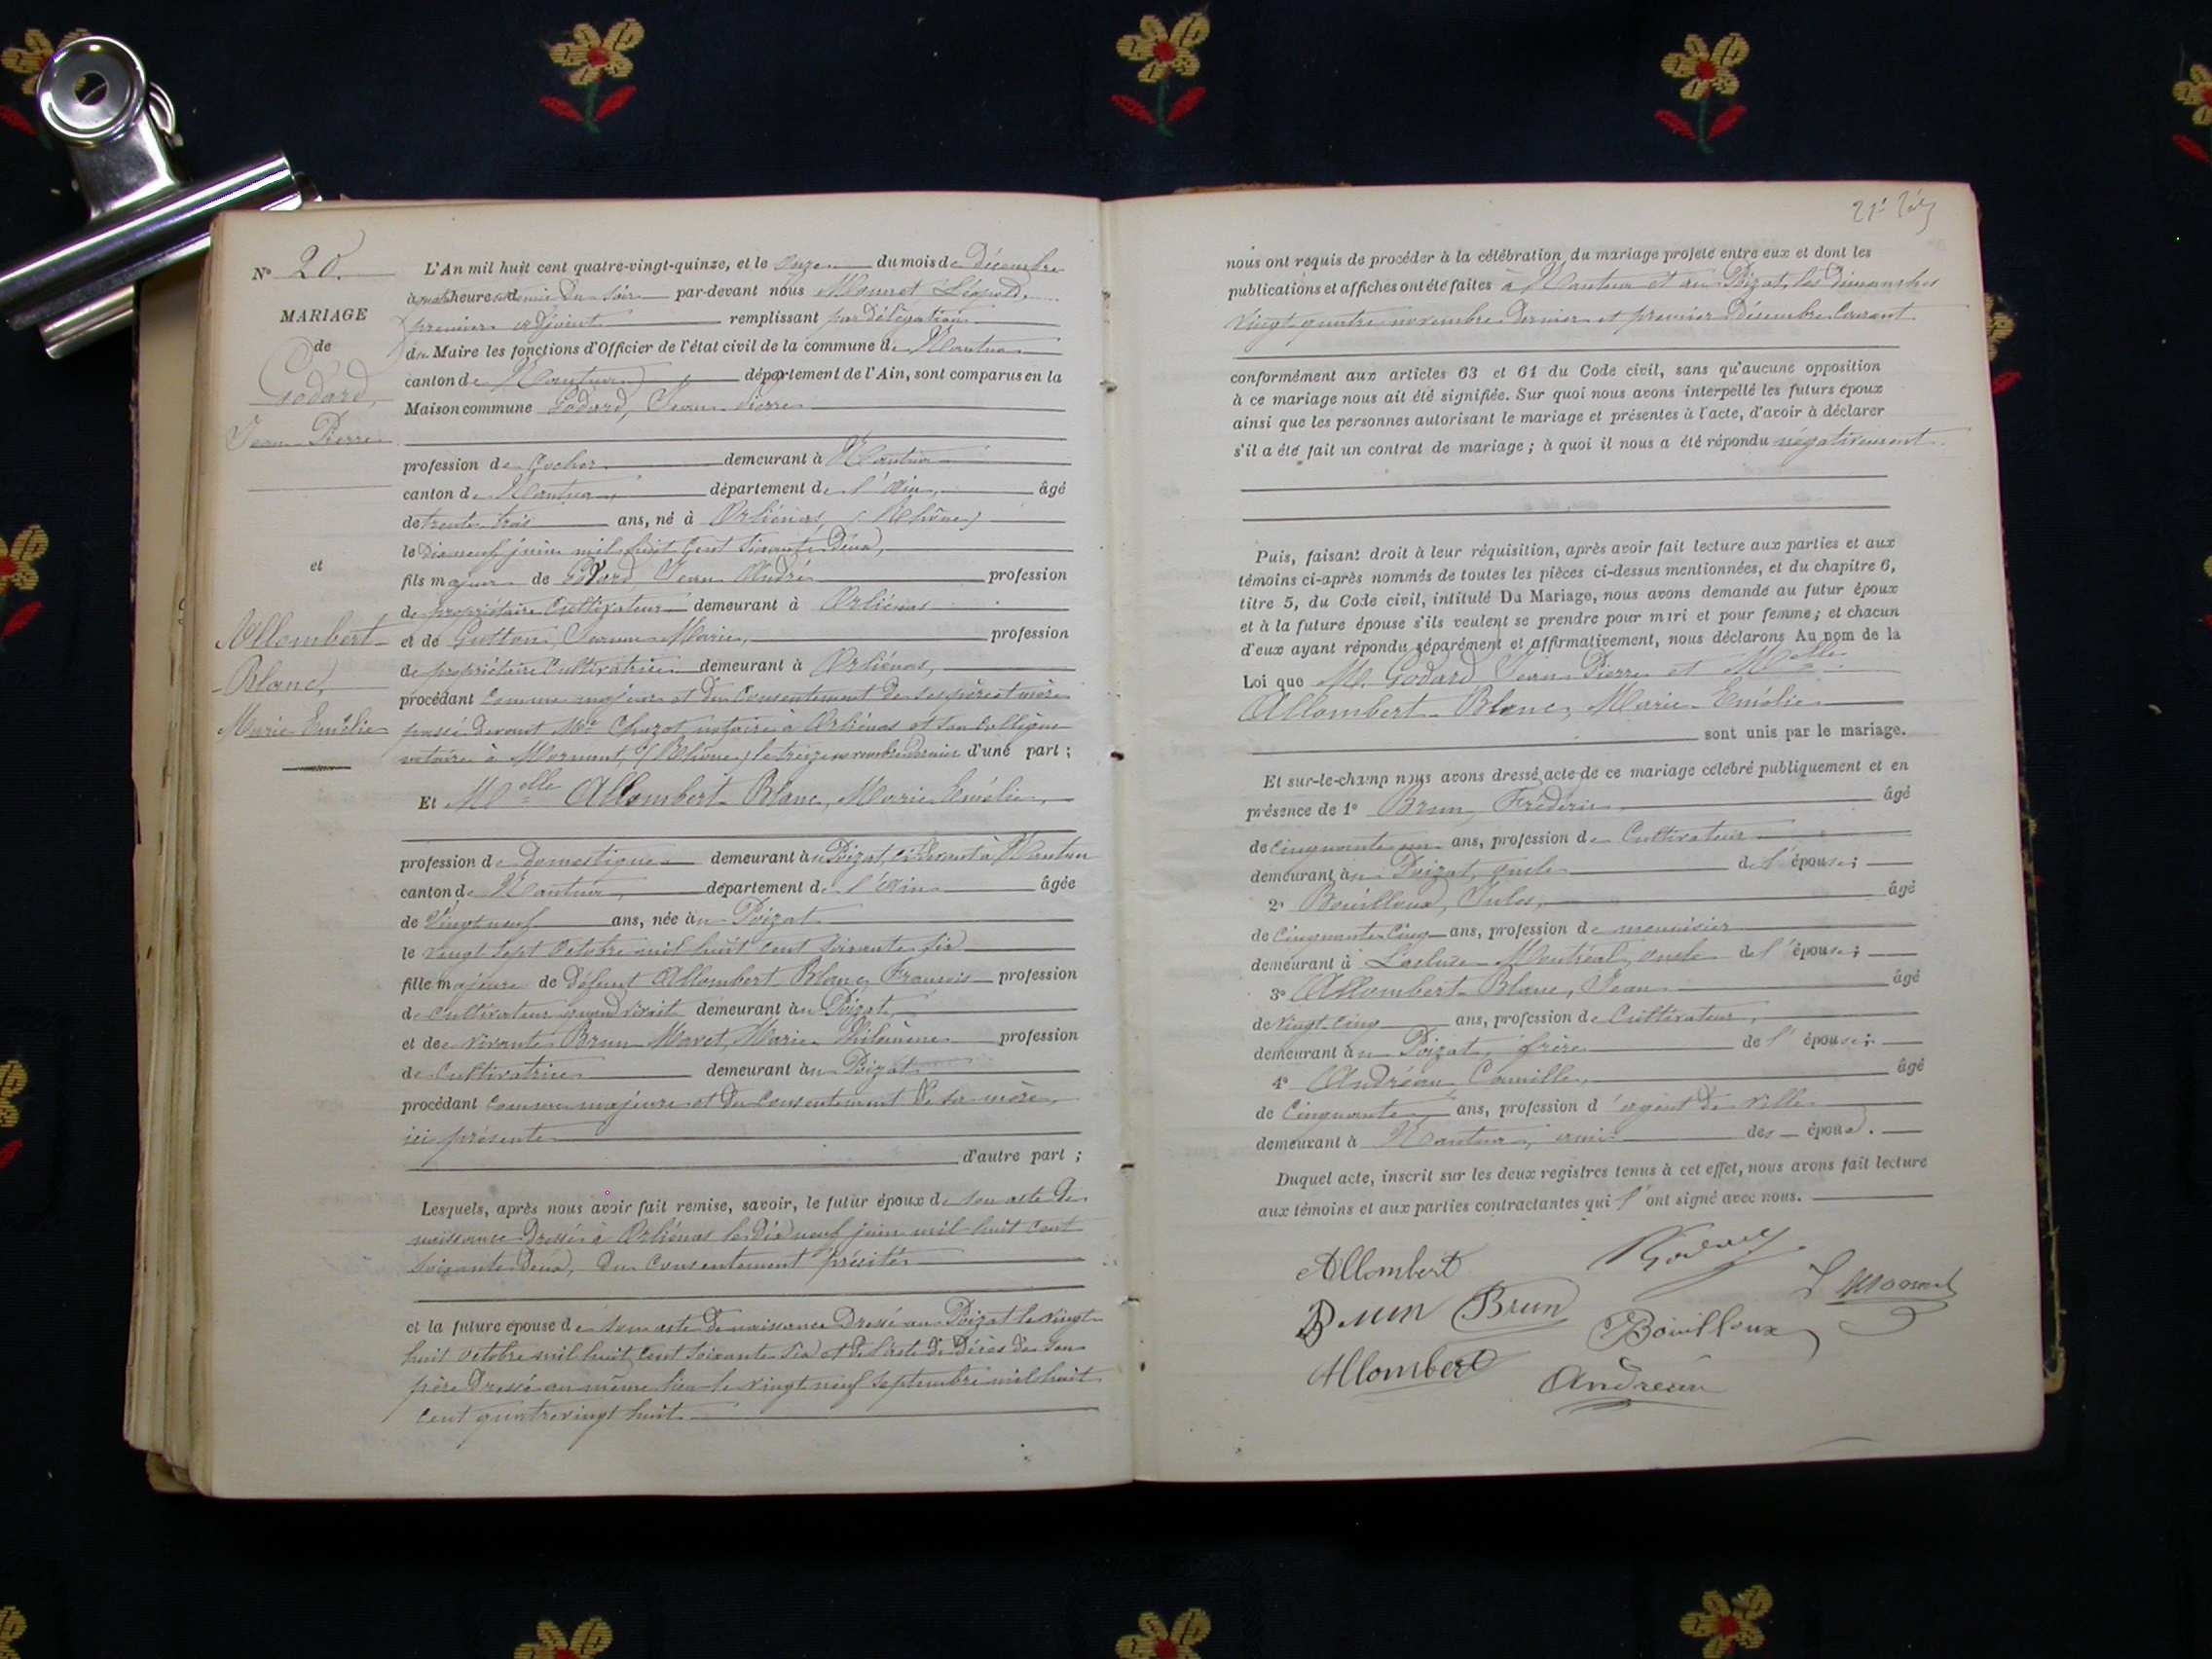 N° 20.
MARIAGE
de
Godard,
Jean Pierre
et
Allombert
Blanc,
Marie Emélie
L'An mil huit cent quatre-vingt-quinze, et le onze du mois de Décembre
à quatre heures et demie du soir par-devant nous Mounet Léopold,
premier adjoint remplissant par délégation
du Maire les fonctions d'Officier de l'état civil de la commune de Nantua
canton de Nantua département de l'Ain, sont comparus en la
Maison commune Godard, Jean Pierre
profession de Cocher demeurant à Nantua
canton de Nantua, département de l'Ain, âgé
de trente trois ans, né à Orliénas (Rhône)
le dix neuf juin mil huit cent soixante deux,
fils majeur de Godard Jean André profession
de propriétaire cultivateur demeurant à Orliénas
et de Gutton, Jeanne Marie, profession
de propriétaire cultivatrice demeurant à Orliénas,
procédant comme majeur et du consentement de ses père et mère
passé devant Me Chazot, notaire à Orliénas et son collègue
notaire à Mornant, (Rhône) le treize novembre dernier d'une part ;
Et Melle Allombert Blanc, Marie Emélie,
profession de domestique demeurant au Poizat, ci devant à Nantua
canton de Nantua, département de l'Ain âgée
de Vingt neuf ans, née au Poizat
le vingt sept octobre mil huit cent soixante six
fille majeure de défunt Allombert Blanc, François profession
de cultivateur quand vivait demeurant au Poizat,
et de vivante Brun Mavet, Marie Philomène profession
de cultivatrice demeurant au Poizat
procédant comme majeure et du consentement de sa mère
ici présente
d'autre part ;
Lesquels, après nous avoir fait remise, savoir, le futur époux de son acte de
naissance dressé à Orliénas le dix neuf juin mil huit cent
soixante deux, du consentement précité
et la future épouse de son acte de naissance dressé au Poizat le vingt
huit octobre mil huit cent soixante six et de l'acte de décès de son
père dressé au même lieu le vingt neuf septembre mil huit
cent quatre vingt huit
nous ont requis de procéder à la célébration du mariage projeté entre eux et dont les
publications et affiches ont été faites à Nantua et au Poizat, les dimanches
vingt quatre novembre dernier et premier Décembre courant
conformément aux articles 63 et 64 du Code civil, sans qu'aucune opposition
à ce mariage nous ait été signifiée. Sur quoi nous avons interpellé les futurs époux
ainsi que les personnes autorisant le mariage et présentes à l'acte, d'avoir à déclarer
s'il a été fait un contrat de mariage ; à quoi il nous a été répondu négativement
Puis, faisant droit à leur réquisition, après avoir fait lecture aux parties et aux
témoins ci-après nommés de toutes les pièces ci-dessus mentionnées, et du chapitre 6,
titre 5, du Code civil, intitulé Du Mariage, nous avons demandé au futur époux
et à la future épouse s'ils veulent se prendre pour mari et pour femme ; et chacun
d'eux ayant répondu séparément et affirmativement, nous déclarons Au nom de la
Loi que M. Godard Jean Pierre et Melle
Allombert Blanc, Marie Emélie
sont unis par le mariage.
Et sur-le-champ nous avons dressé acte de ce mariage célébré publiquement et en
présence de 1° Brun Frédéric âgé
de cinquante un ans, profession de Cultivateur
demeurant au Poizat, oncle de l'épouse ;
2° Bouilloux, Jules, âgé
de cinquante cinq ans, profession de menuisier
demeurant à Lacluse Montréal, oncle de l'épouse ;
3° Allombert Blanc, Jean âgé
de vingt cinq ans, profession de Cultivateur,
demeurant au Poizat, frère de l'épouse ;
4° Andréan Camille, âgé
de Cinquante ans, profession d'agent de ville
demeurant à Nantua, ami des époux.
Duquel acte, inscrit sur les deux registres tenus à cet effet, nous avons fait lecture
aux témoins et aux parties contractantes qui l'ont signé avec nous.
Allombert
Godard
L Mounet
Brun Brun
Bouilloux
Allombert
Andrean